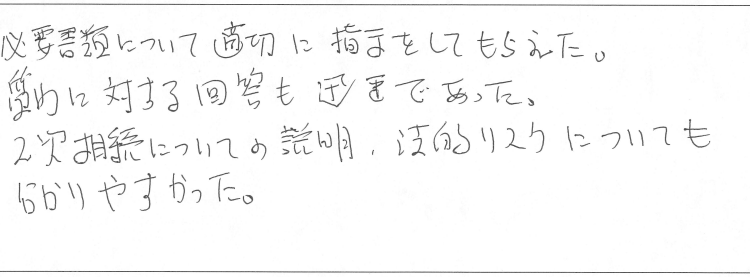 必要書類について適切に指示をしてもらえた。
質問に対する回答も迅速であった。
2次相続についての説明、法的リスクについても
分かりやすかった。